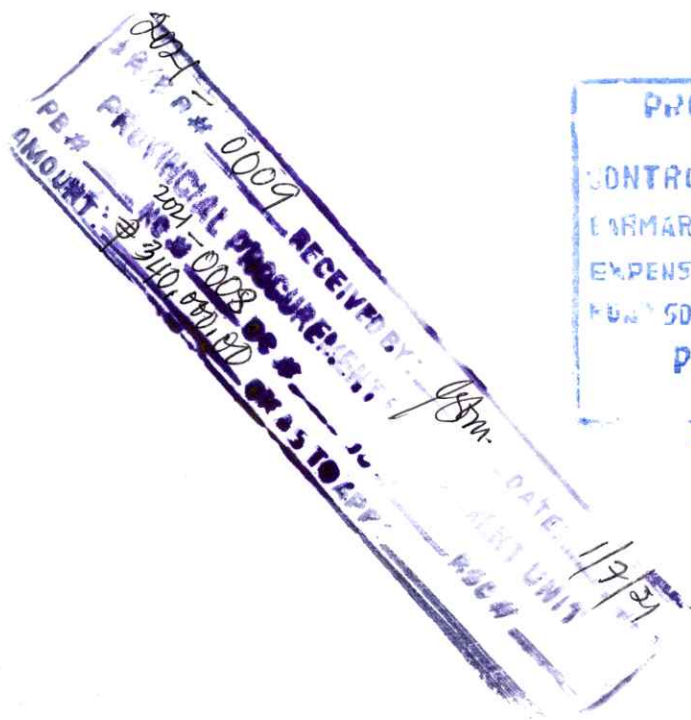 2021-
PR # 0009 RECEIVED BY: DATE: 1/7/21
PROVINCIAL PROCUREMENT UNIT
PB # NC # 2021-0008 DC #
AMOUNT: ₱ 340,000.00 OK AS TO APP
PR
CONTRO
EARMAR
EXPENS
FUND SO
P